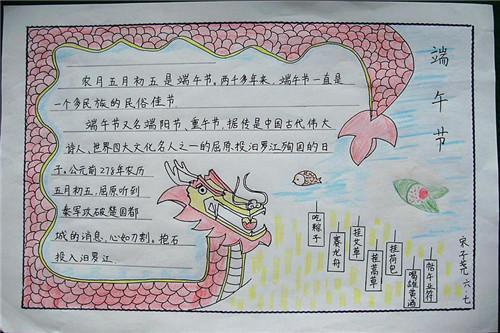 端午节
农月五月初五是端午节。两千多年来,端午节一直是
一个多民族的民俗佳节
端午节又名端阳节,重午节,据传是中国古代伟大
诗人,世界四大文化名人之一的屈原投汨罗江殉国的日
子。公元前278年农历
五月初五,屈原听到
秦军攻破楚国都
城的消息,心如刀割。抱石
投入汨罗江
吃粽子
赛龙舟
挂艾草
挂菖草
挂荷包
喝雄黄酒
帖午业符
六.七